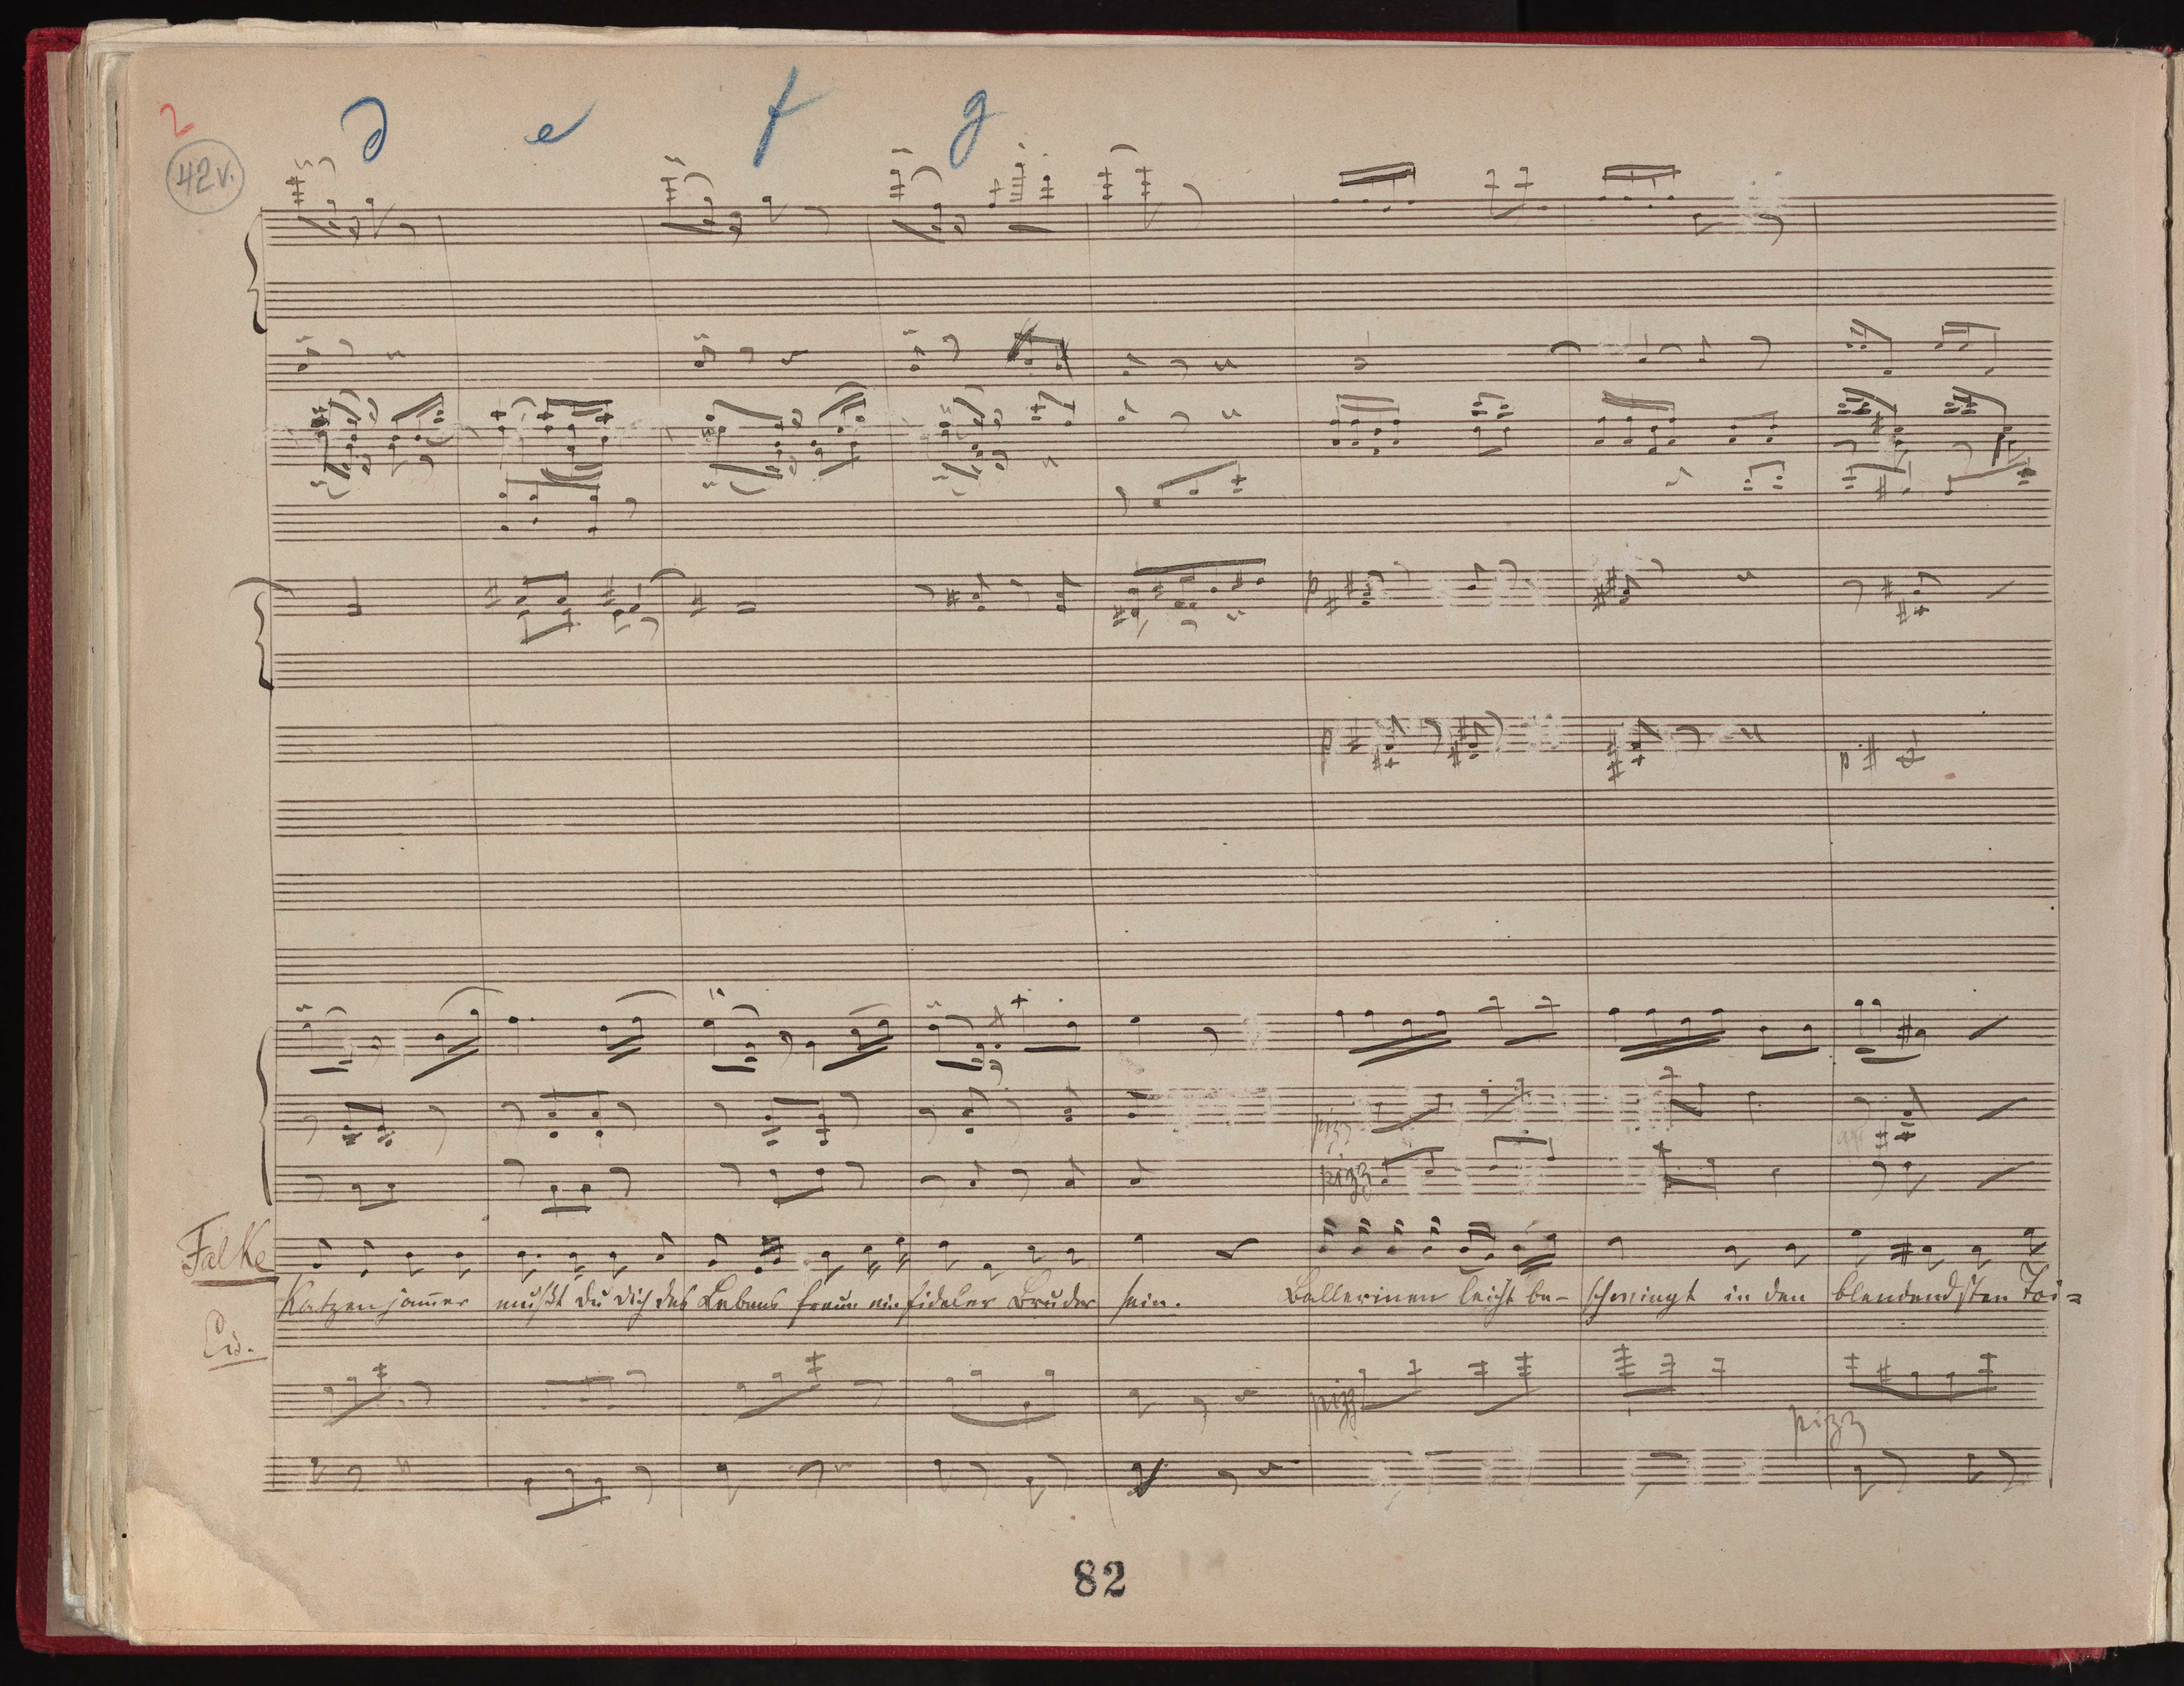 2
d e f g
42v.
p
p p
pizz
pizz
Falke
Katzenjam̄er mußt du dich des Lebens freun ein fideler Bruder sein. Ballerinen leicht be- schwingt in den blendendsten Toi=
Eis.
pizz
pizz
82